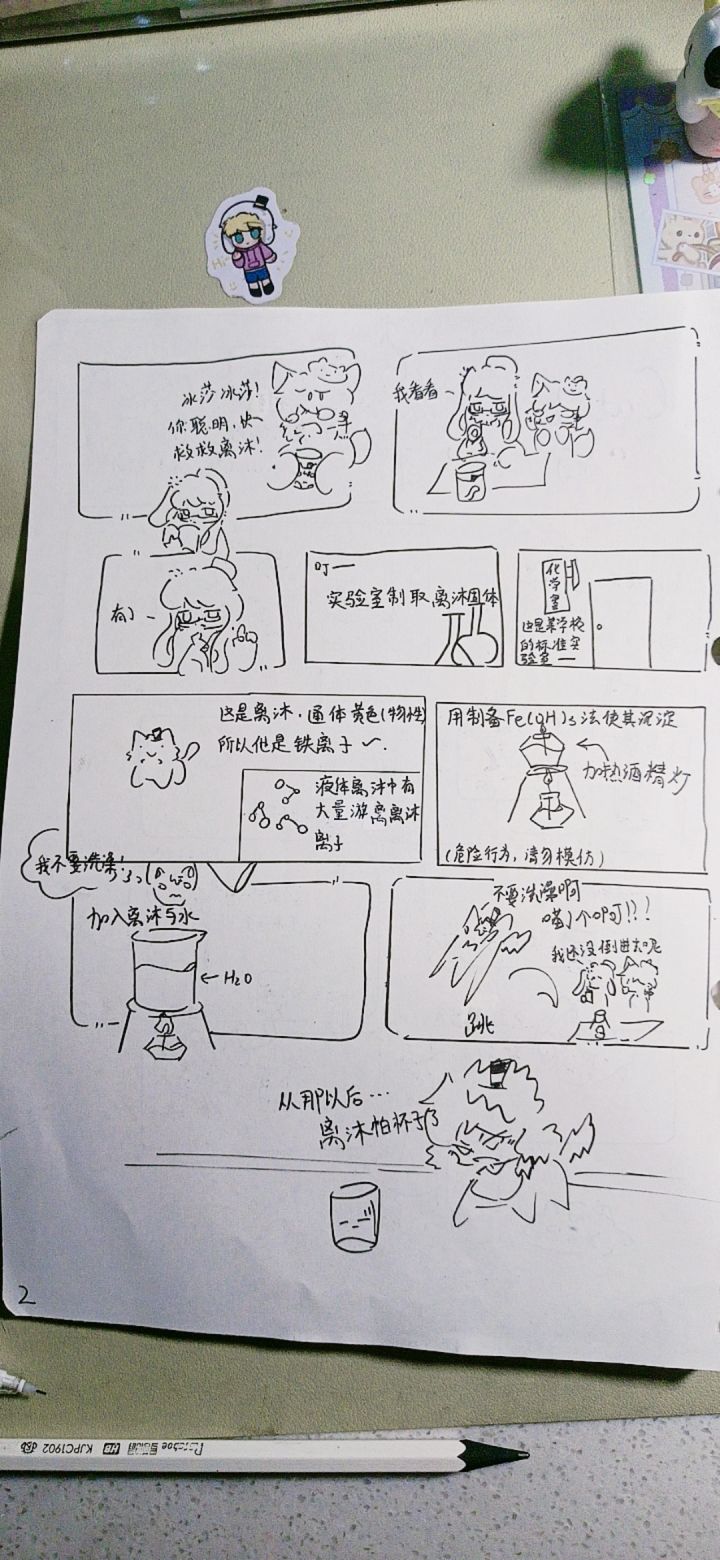 冰莎冰莎!
你聪明,快
救救离沐!
我看看~
有!
叮——
实验室制取离沐固体
化学室
这是某学校
的标准实
验室——
这是离沐,通体黄色(物性)
所以他是铁离子
液体离沐中有
大量游离离沐
离子
用制备Fe(OH)3法使其沉淀
加热酒精灯
(危险行为,请勿模仿)
我不要洗澡!
加入离沐与水
H2O
不要洗澡啊
喵个叽!!!
我还没倒进去呢
跳
从那以后…
离沐怕杯子了
2
KJPC1902 HB